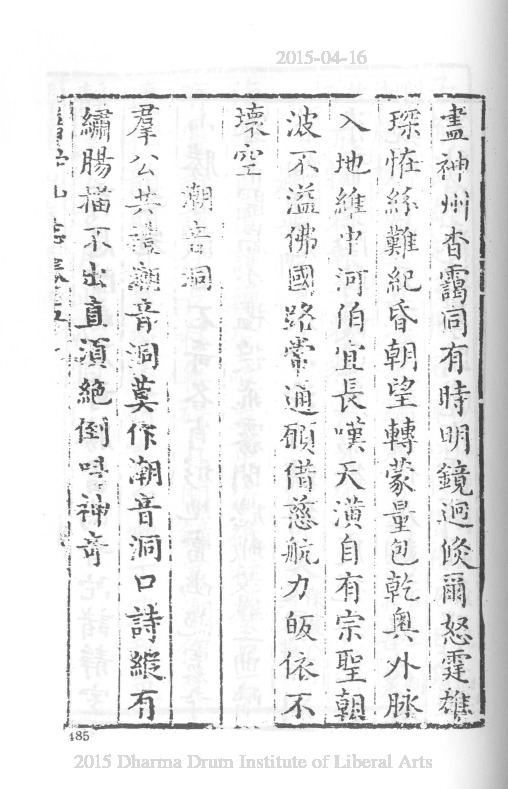 2015-04-16
盡神州杳靄同有時明鏡迥倐爾怒霆雄
琛恠紛難紀昏朝望轉蒙量包乾奧外脉
入地維中河伯宜長嘆天潢自有宗聖朝
波不溢佛國路常通願借慈航力皈依不
壞空
潮音洞
羣公共讀潮音洞莫作潮音洞口詩縱有
繡腸描不出直須絕倒呌神奇
485
2015 Dharma Drum Institute of Liberal Arts